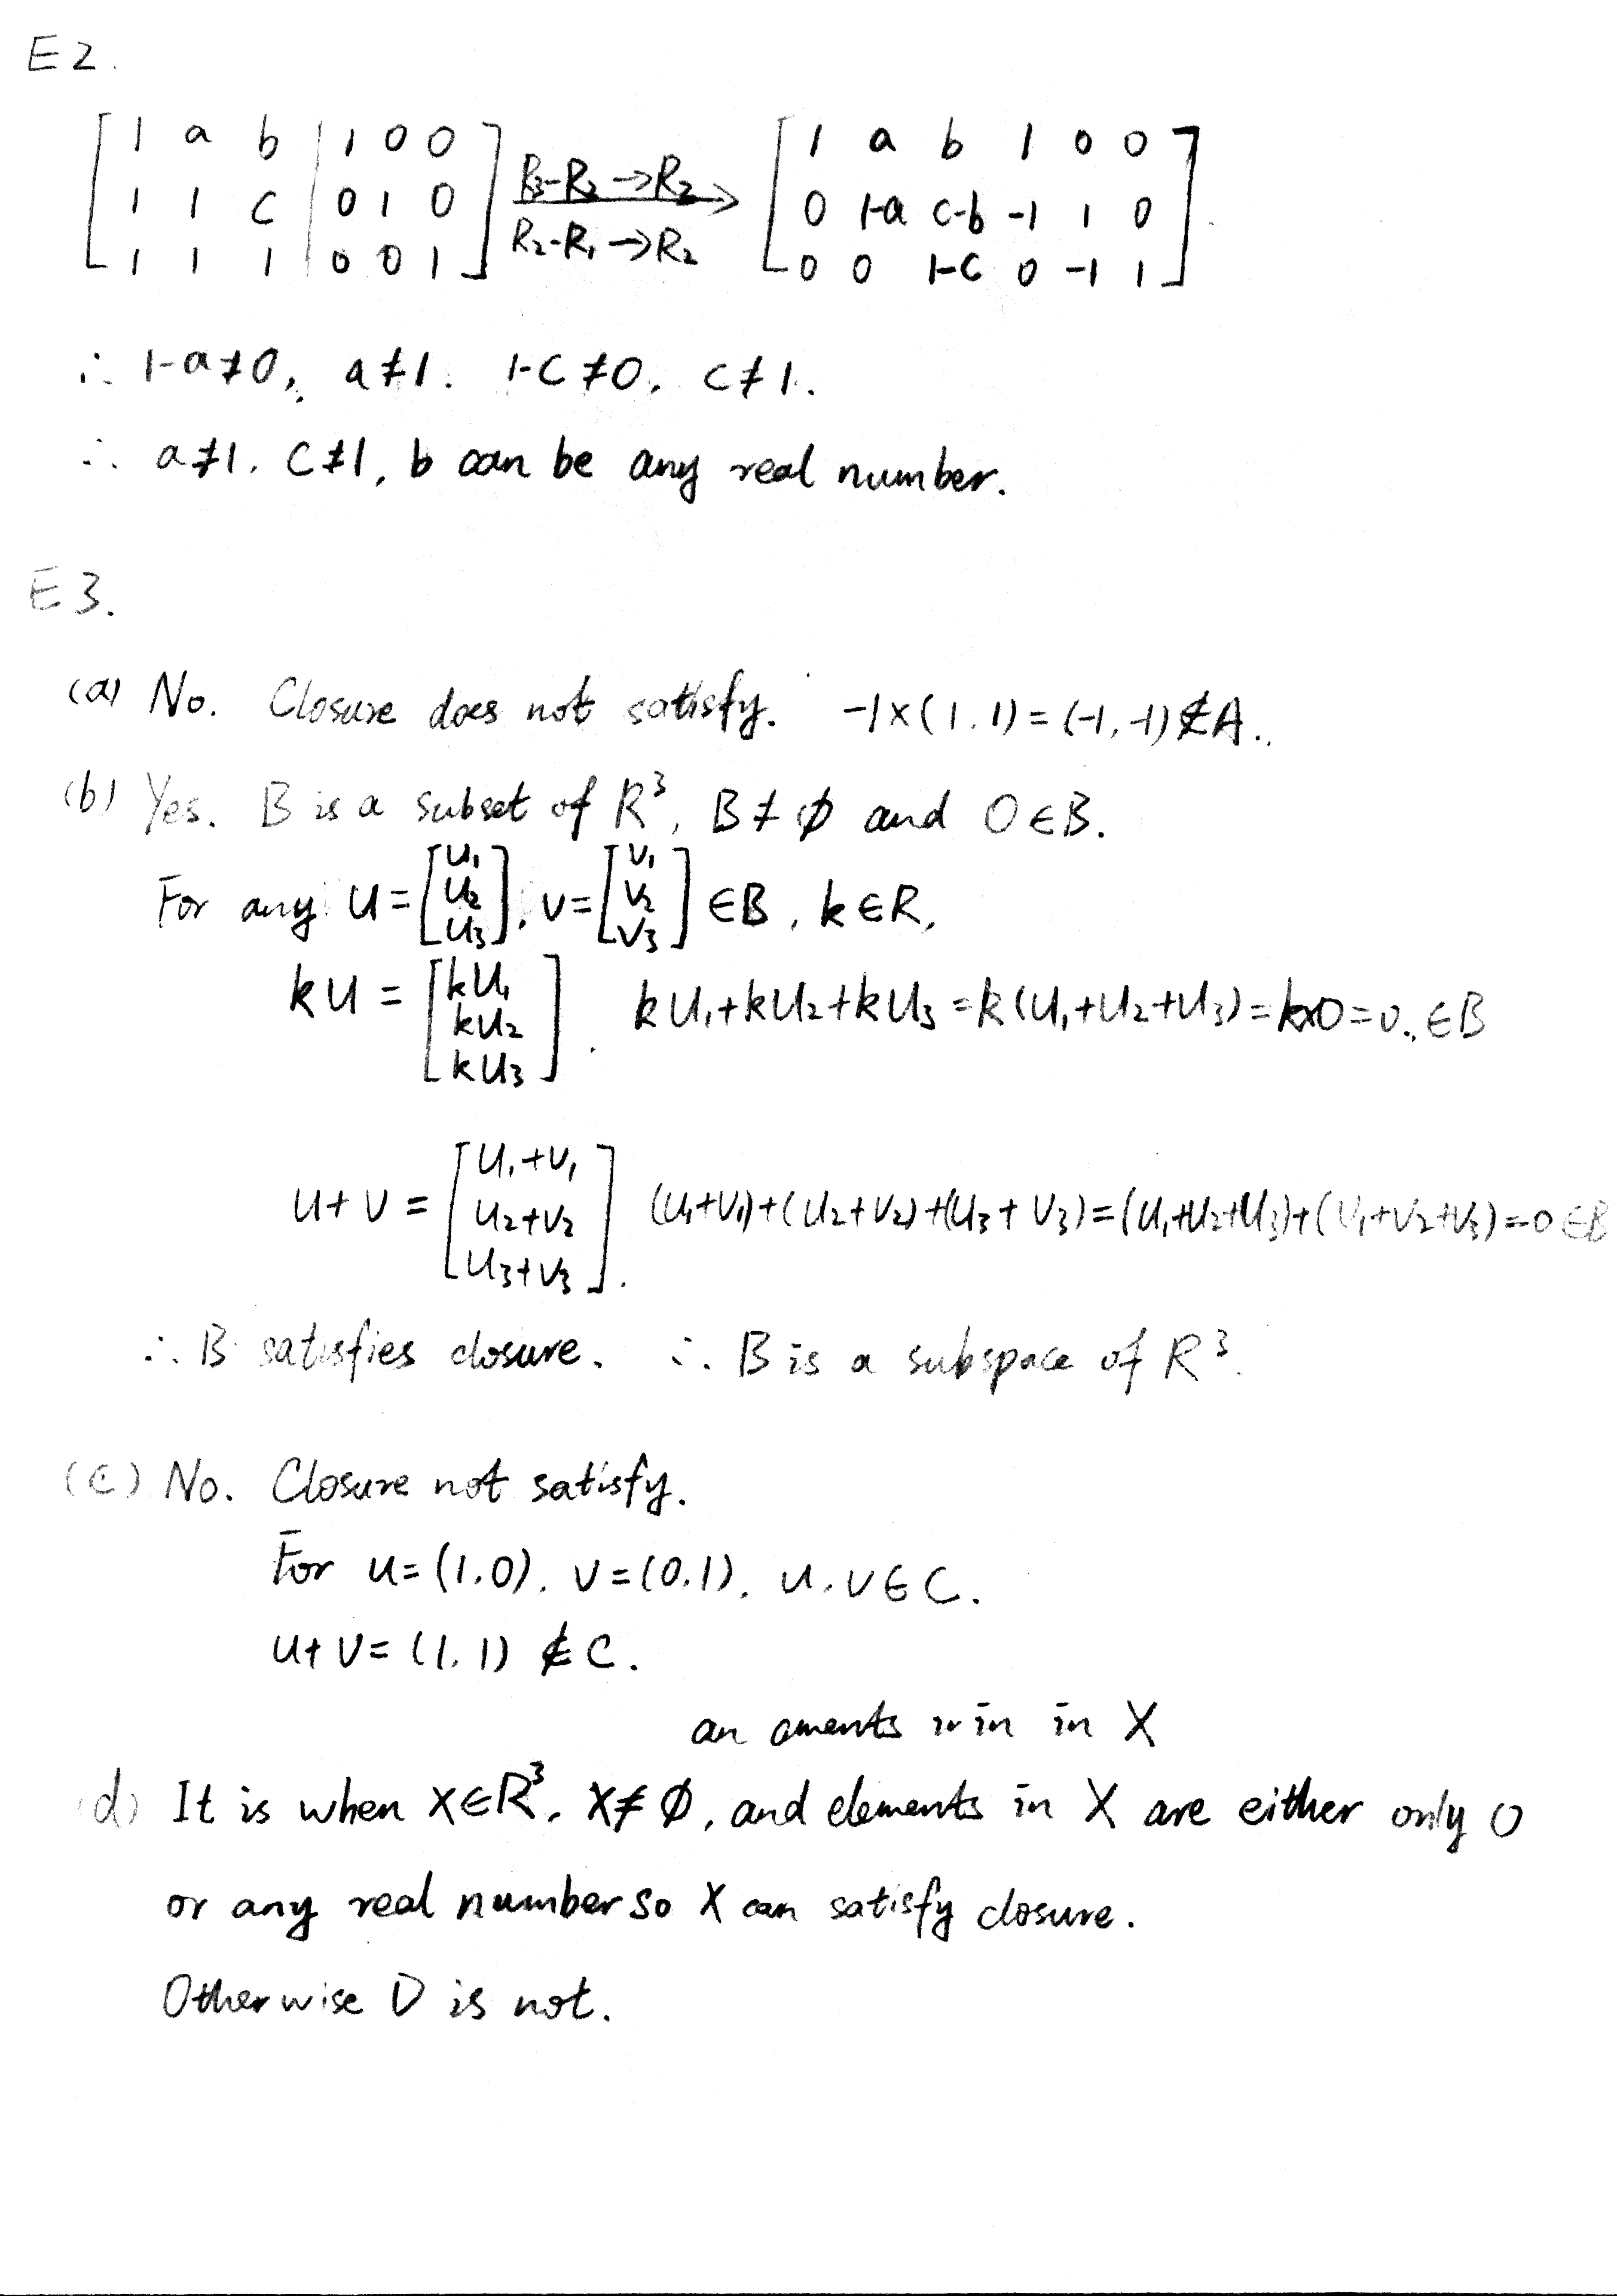 E2.
[1 a b | 1 0 0
1 1 c | 0 1 0
1 1 1 | 0 0 1] R3-R2→R2 / R2-R1→R2 → [1 a b 1 0 0
0 1-a c-b -1 1 0
0 0 1-c 0 -1 1]
∴ 1-a≠0, a≠1. 1-c≠0, c≠1.
∴ a≠1, c≠1, b can be any real number.
E3.
(a) No. Closure does not satisfy. -1×(1,1)=(-1,-1)∉A.
(b) Yes. B is a subset of R³, B≠∅ and 0∈B.
For any u=[u₁ u₂ u₃], v=[v₁ v₂ v₃] ∈B, k∈R,
ku=[ku₁ ku₂ ku₃]. ku₁+ku₂+ku₃=k(u₁+u₂+u₃)=k×0=0, ∈B
u+v=[u₁+v₁ u₂+v₂ u₃+v₃]. (u₁+v₁)+(u₂+v₂)+(u₃+v₃)=(u₁+u₂+u₃)+(v₁+v₂+v₃)=0∈B
∴ B satisfies closure. ∴ B is a subspace of R³.
(c) No. Closure not satisfy.
For u=(1,0), v=(0,1), u,v∈C.
u+v=(1,1)∉C.
an aments in in X
(d) It is when X∈R³, X≠∅, and elements in X are either only 0
or any real number so X can satisfy closure.
Otherwise D is not.